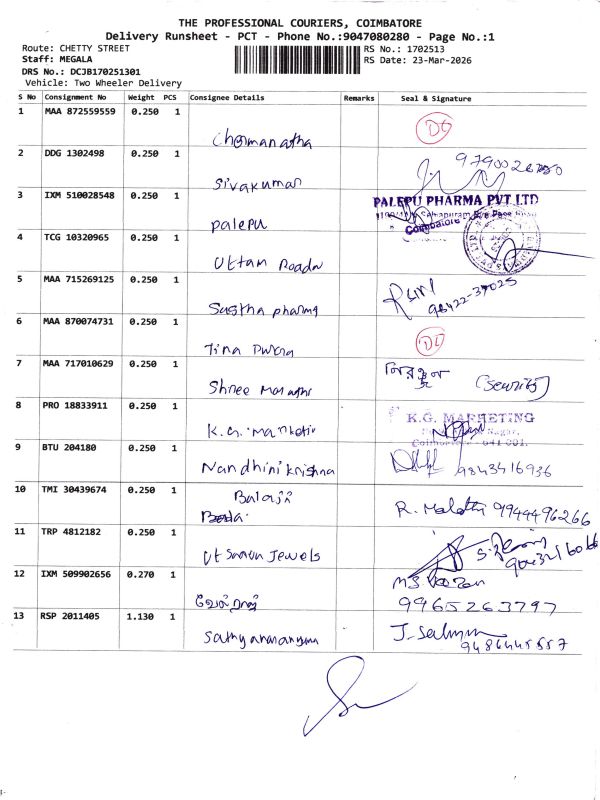 THE PROFESSIONAL COURIERS, COIMBATORE
Delivery Runsheet - PCT - Phone No.:9047080280 - Page No.:1
Route: CHETTY STREET
RS No.: 1702513
Staff: MEGALA
RS Date: 23-Mar-2026
DRS No.: DCJB170251301
Vehicle: Two Wheeler Delivery
S No Consignment No Weight PCS Consignee Details Remarks Seal & Signature
1 MAA 872559559 0.250 1
2 DDG 1302498 0.250 1 Sivakumar
3 IXM 510028548 0.250 1 palepu PALEPU PHARMA PVT LTD
Coimbatore
4 TCG 10320965 0.250 1 Uttam
5 MAA 715269125 0.250 1 Sastha pharma
6 MAA 870074731 0.250 1 Tina
7 MAA 717010629 0.250 1 Shree (Security)
8 PRO 18833911 0.250 1 K.G. K.G. MARKETING
9 BTU 204180 0.250 1 Nandhini krishna 9843416936
10 TMI 30439674 0.250 1 Balaji R. Malathi 9944496266
11 TRP 4812182 0.250 1 Jewels
12 IXM 509902656 0.270 1 9965263797
13 RSP 2011405 1.130 1 9486445557